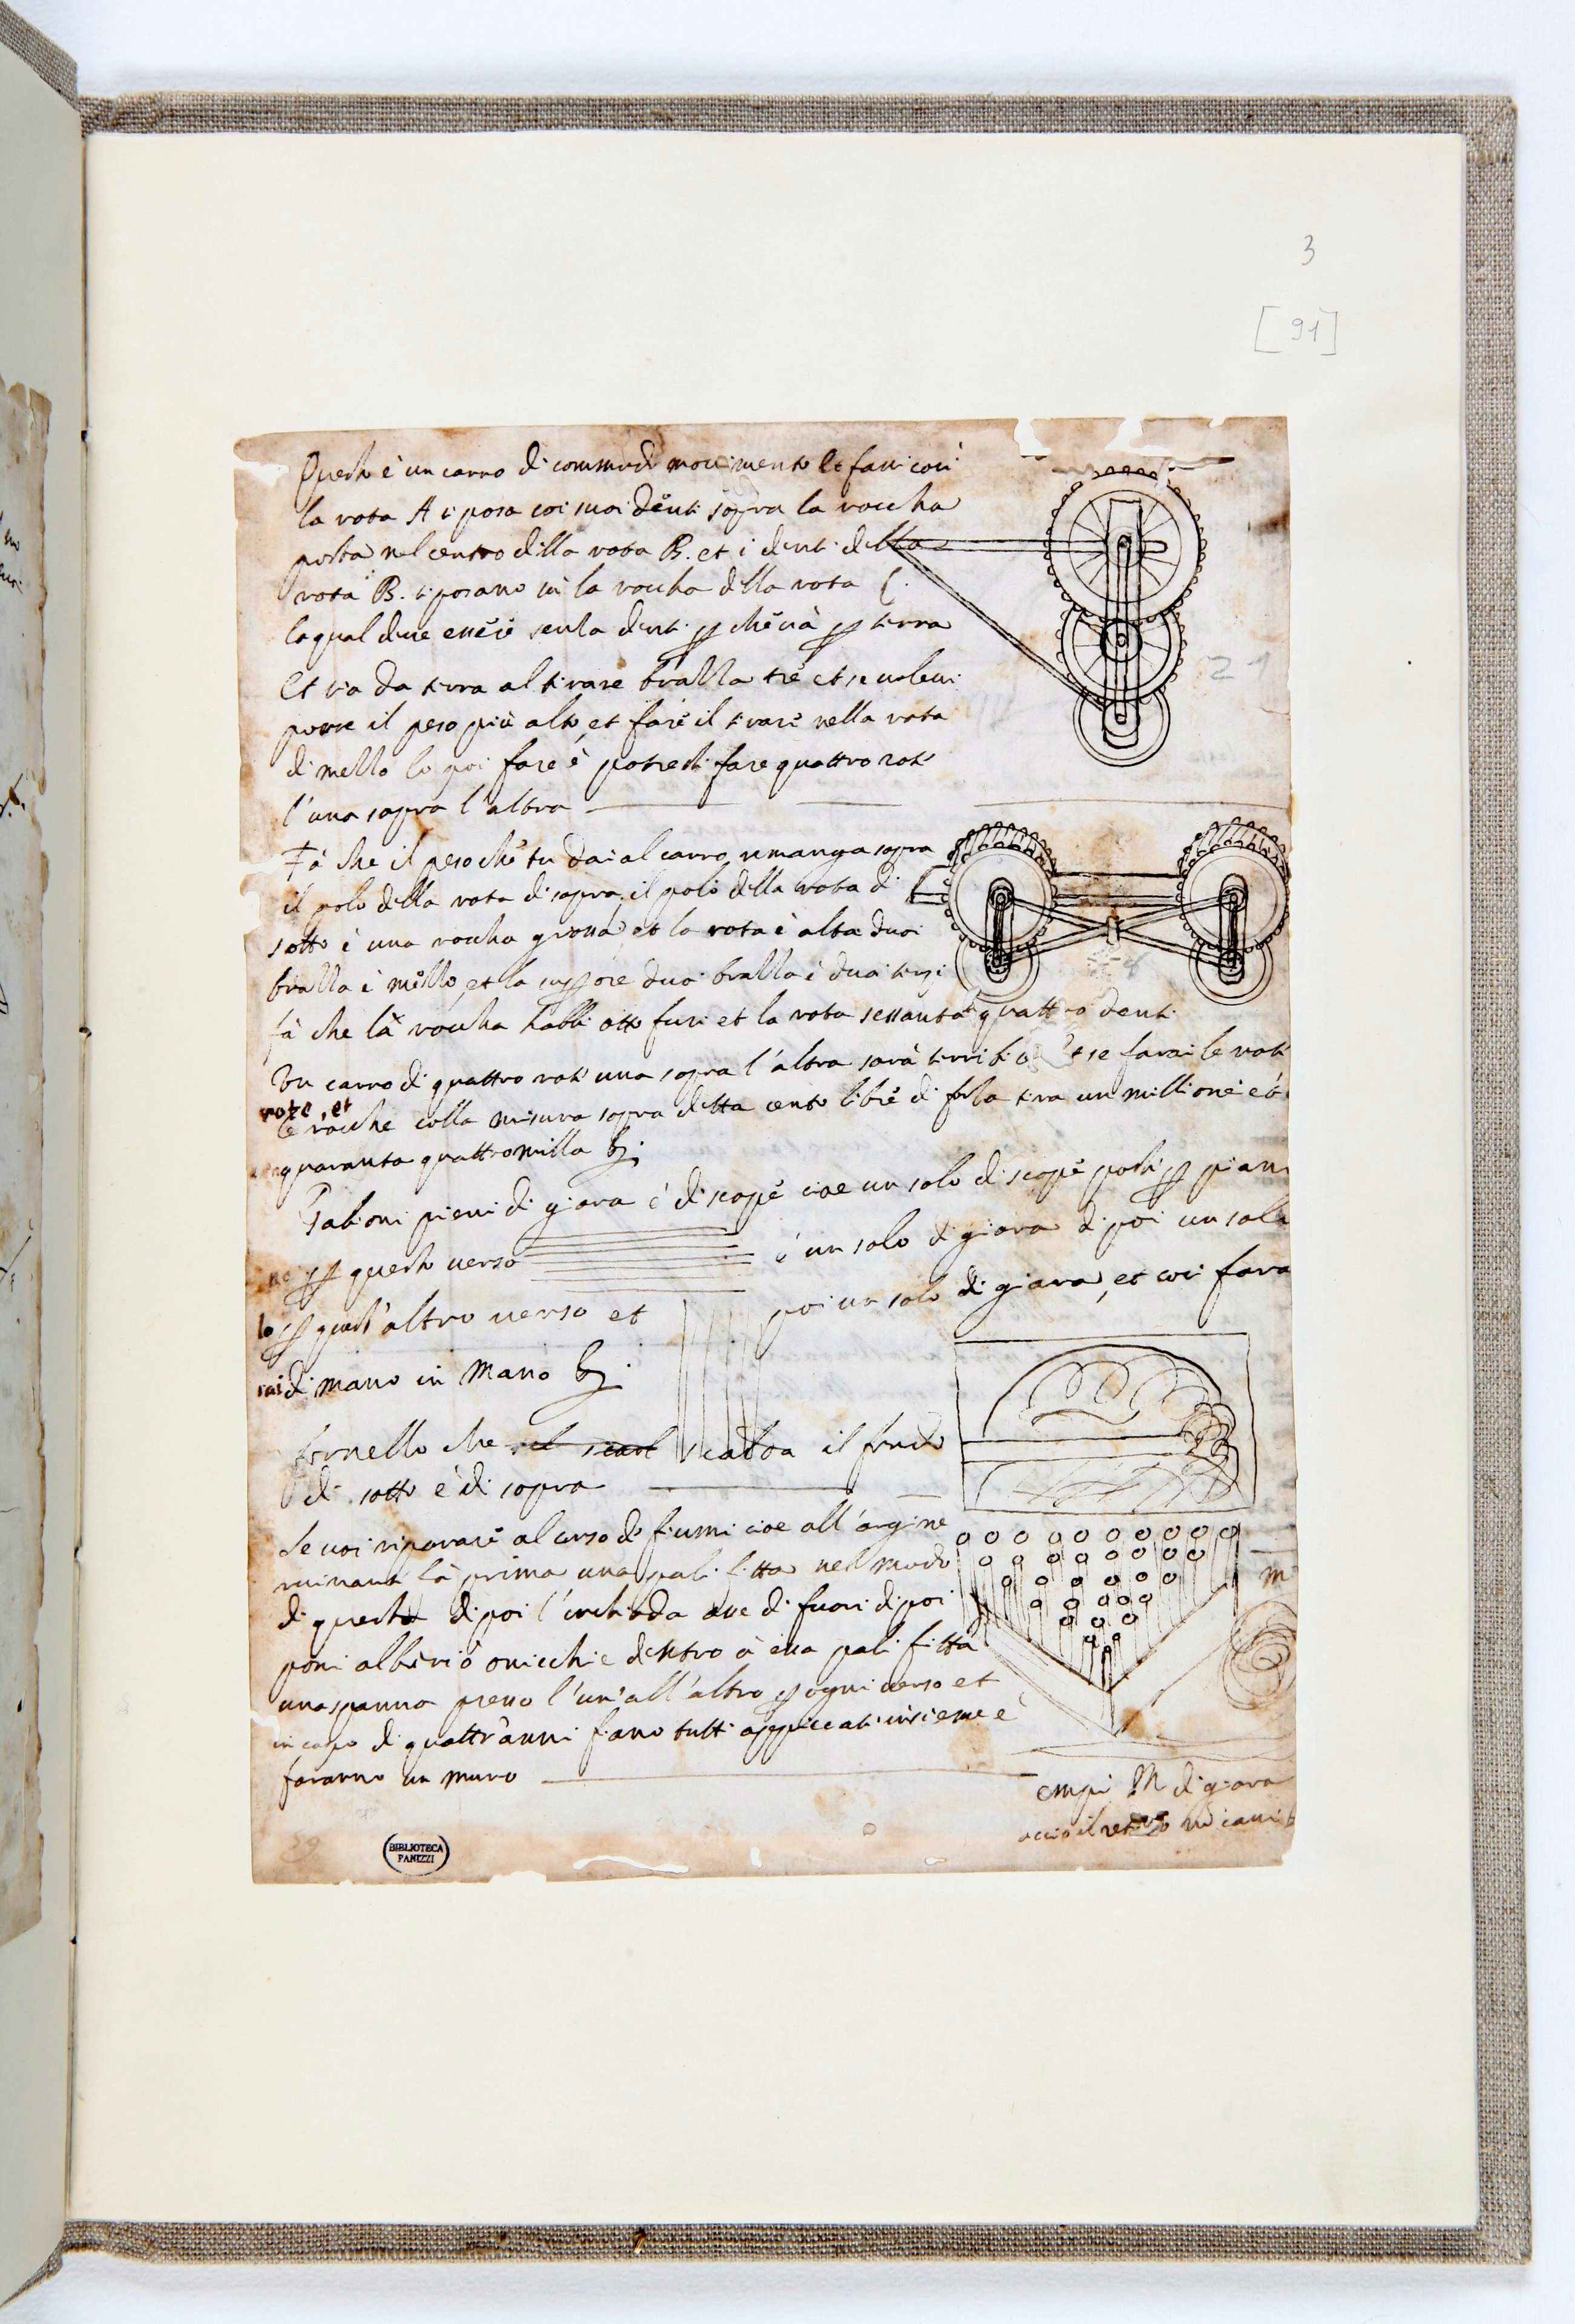 3
[91]
Questo è un carro di commodo movimento et fassi così
la rota A si posa coi suoi denti sopra la roccha
posta nel centro della rota B. et i denti della
rota B. si posano in la roccha della rota C.
la qual deve essere senza denti ꝑ che và ꝑ terra
Et via da terra al tirare brazza tre et se volessi
porre il peso più alto et fare il tirare nella rota
di mezzo lo poi fare è potresti fare quattro rote
l'una sopra l'altra
Fà che il peso che tu dai al carro rimanga sopra
il polo della rota di sopra il polo della rota di
sotto è una roccha grossa et la rota è alta duoi
brazza è mezzo, et la maggiore duoi brazza è duoi terzi
fà che la roccha habbi otto fusi et la rota sessanta quattro denti
Un carro di quattro rote una sopra l'altra sarà terribile Et se farai le rote
rote, et
le rocche colla misura sopra detta cento libre di forza tira un millione è
quaranta quattromilla
Gabioni pieni di giara è di scope cioe un solo di scope poste ꝑ piano
ne ꝑ questo verso è un solo di giara di poi un solo
lo ꝑ quest'altro verso et poi un solo di giara, et così fara
rai di mano in mano
fornello che scalda il fondo
di sotto è di sopra
Se voi riparare al corso de fiumi cioe all'argine
ruinante fà prima una palifitta nel modo
di questa dipoi l'inchioda ove di fuori dipoi
poni alberi o onicchi e dentro à essa palifitta
una spanna presso l'un'all'altro ꝑ ogni verso et
in capo di quattr'anni fiano tutti appiccati insieme è
faranno un muro
m
empi M di giara
accio il retroso nō cavi
21
BIBLIOTECA
PANIZZI